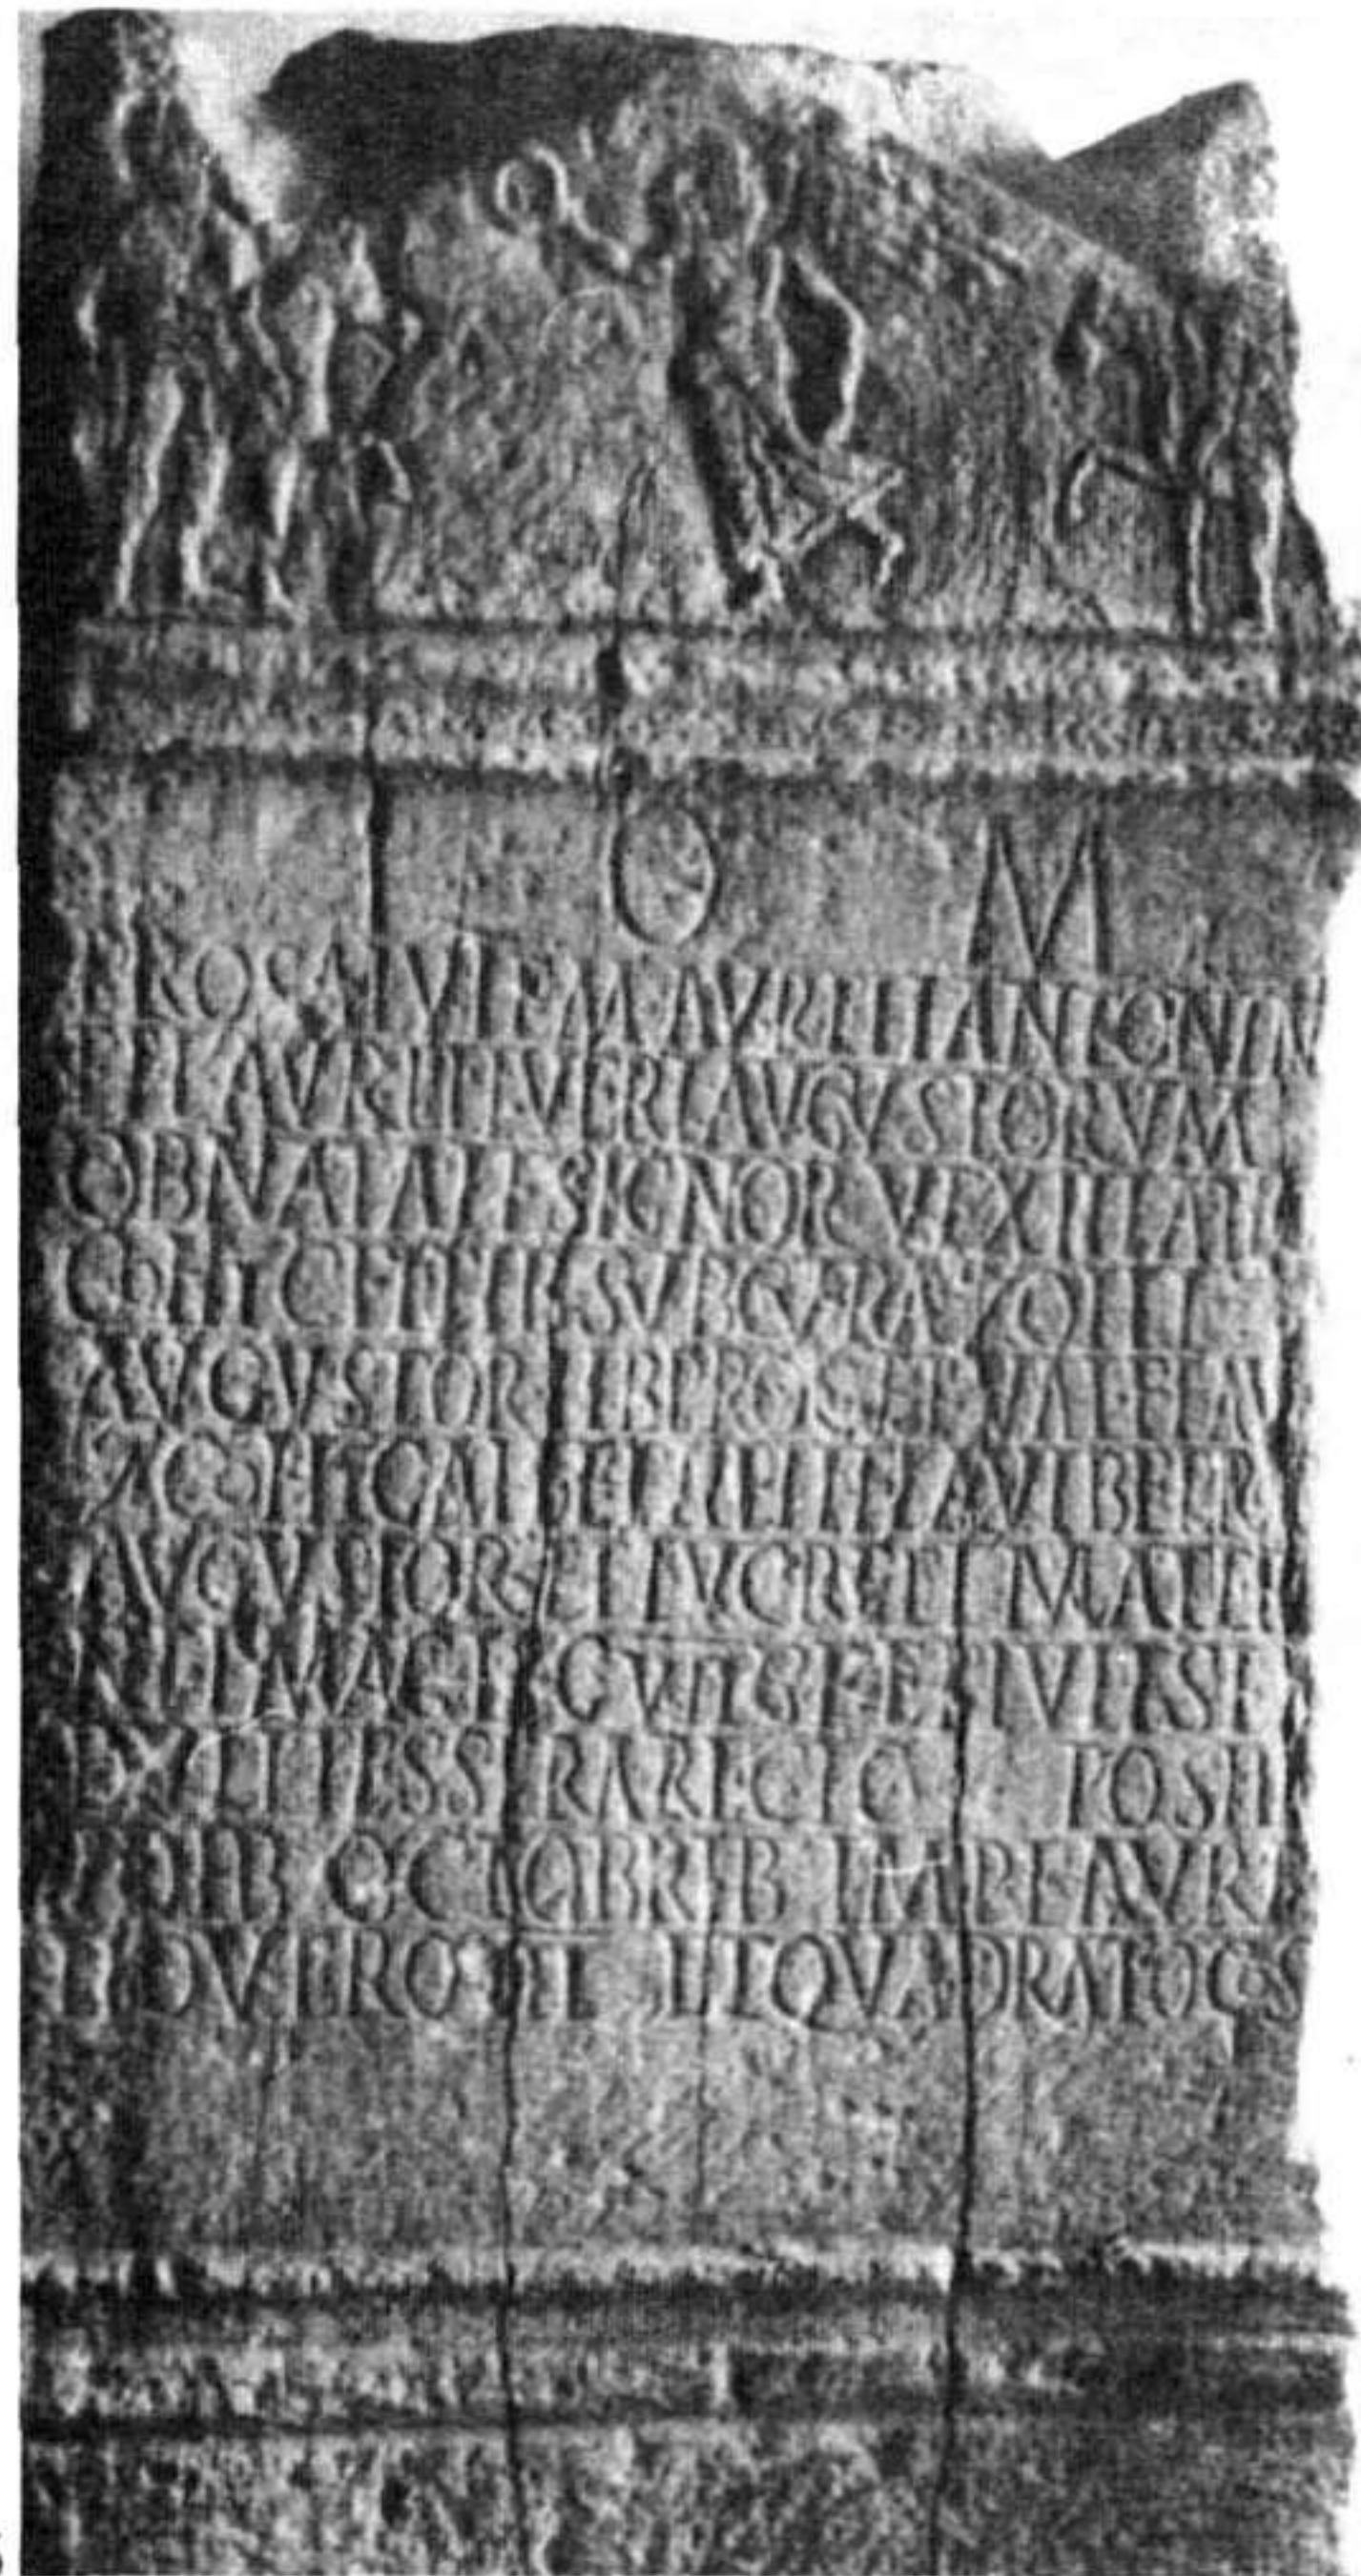 O M
PRO SALVTE M AVRELI ANTONIN
ET L AVRELI VERI AVGVSTORVM
OB NATALE SIGNOR VEXILLATIO
COH I CELTIB SVB CVRA ZOILI
AVGVSTOR LIB PROC ET VAL FLAVI
7 COH I GAL ET AELI FLAVI BF PR
AVGVSTOR ET LVCRETI MATER
NI IMAGIF ET IVLI SE
DVLI TESSERARI C I C POSIT
IDIB OCTOBRIB IMP L AVR
VERO III ET QVADRATO COS